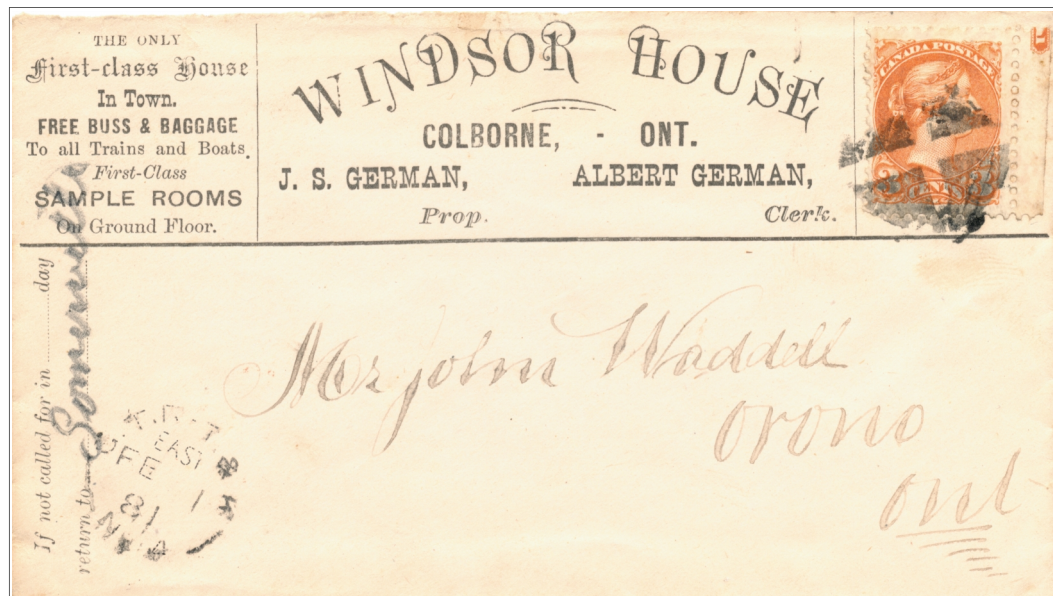 THE ONLY
First-class House
In Town.
FREE BUSS & BAGGAGE
To all Trains and Boats.
First-Class
SAMPLE ROOMS
On Ground Floor.
WINDSOR HOUSE
COLBORNE, - ONT.
J. S. GERMAN, ALBERT GERMAN,
Prop. Clerk.
CANADA POSTAGE
3 CENTS 3
If not called for in ........ day
return to
Mr John Waddell
Orono
Ont
EAST
FE 1
81